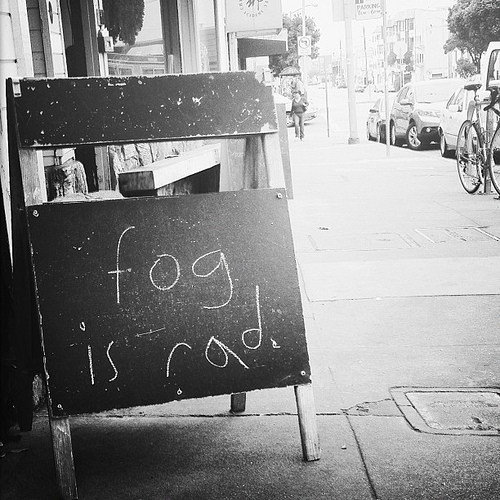 fog
is rad.
PARKING